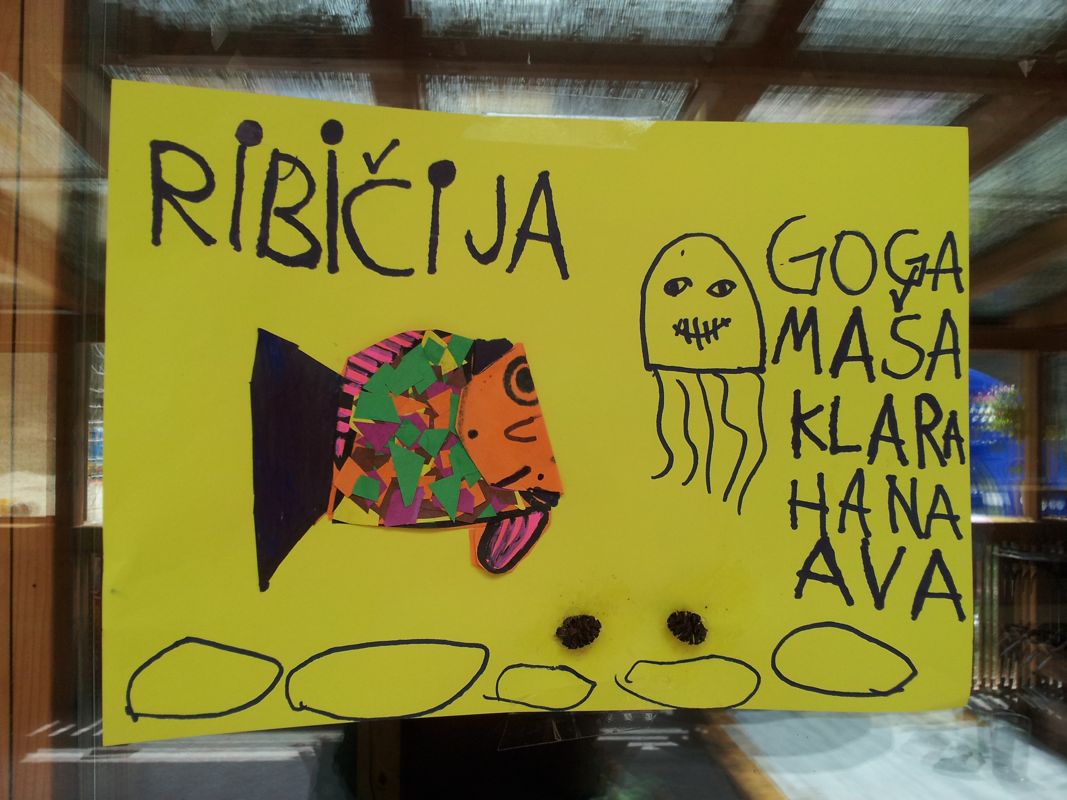 RIBIČIJA
GOGA
MAŠA
KLARA
HANA
AVA